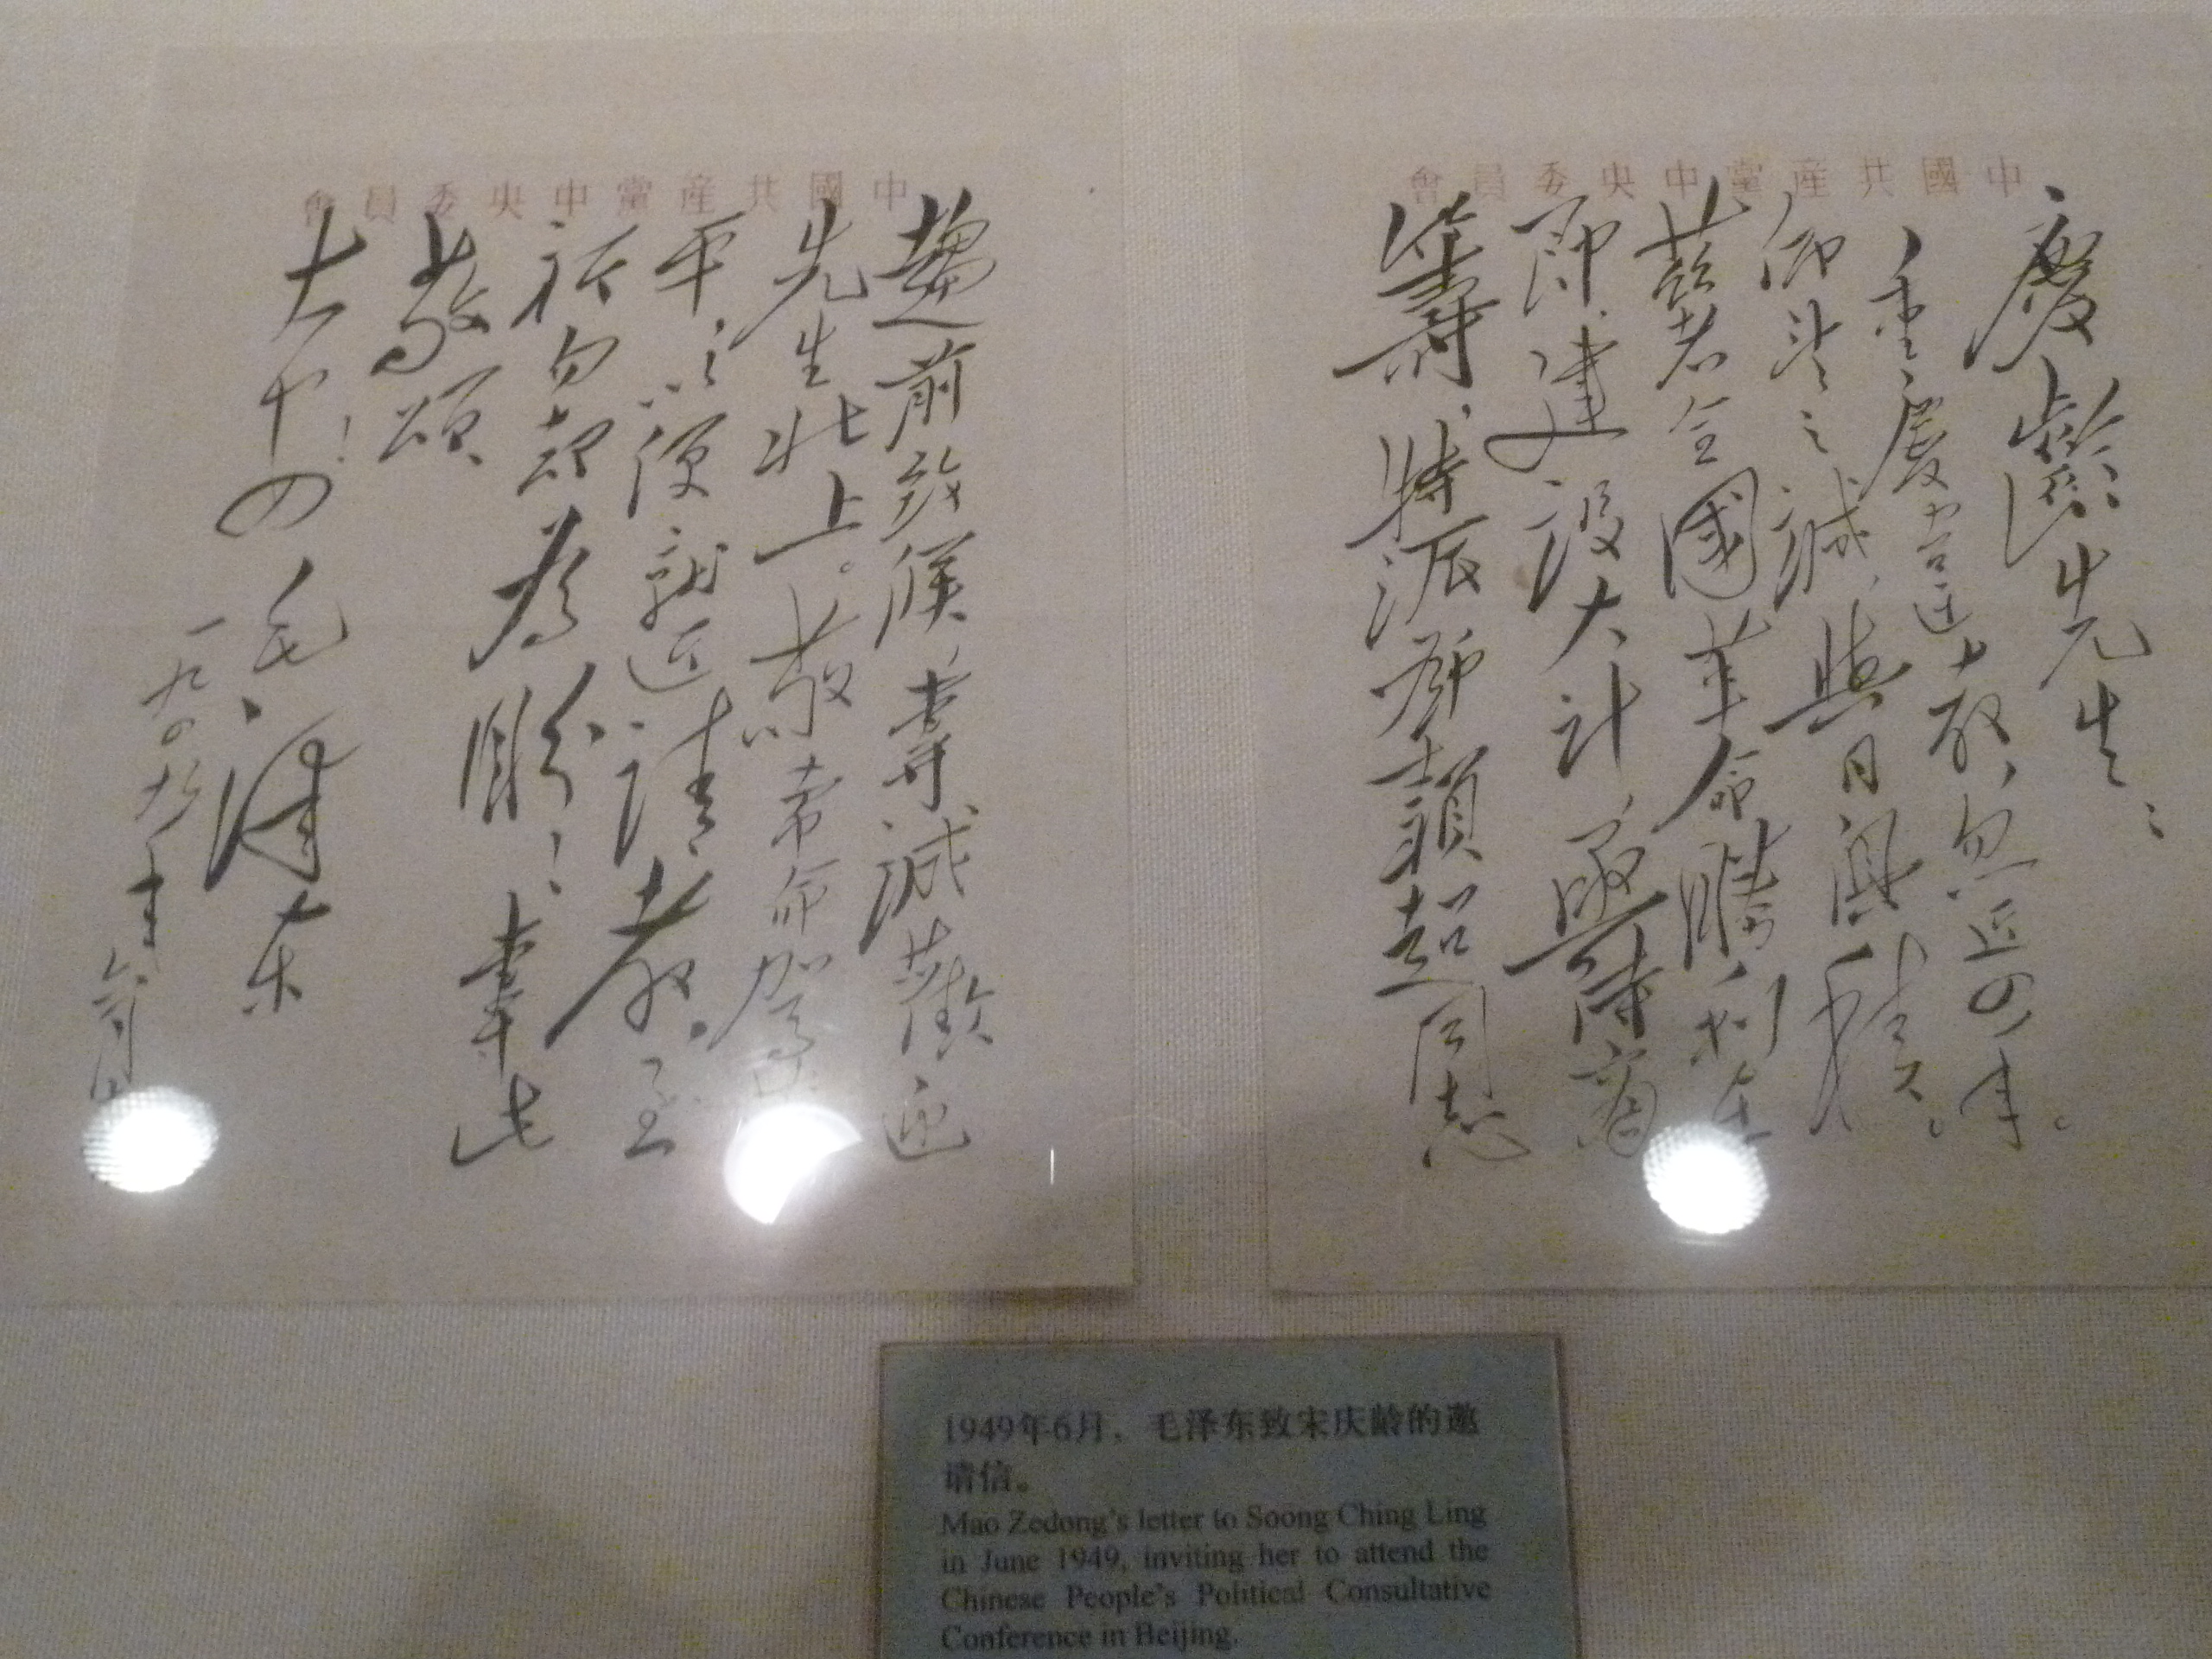 中國共產黨中央委員會
慶齡先生：
重慶違教，忽近四年。
仰望之誠，與日俱積。
茲者全國革命勝利在
即，建設大計，亟待商
籌，特派鄧穎超同志
中國共產黨中央委員會
趨前致候，專誠歡迎
先生北上。敬希命駕
平，以便就近請教，至
祈勿却為盼！專此
敬頌
大安！
毛澤东
一九四九年六月
1949年6月，毛泽东致宋庆龄的邀
请信。
Mao Zedong's letter to Soong Ching Ling
in June 1949, inviting her to attend the
Chinese People's Political Consultative
Conference in Beijing.